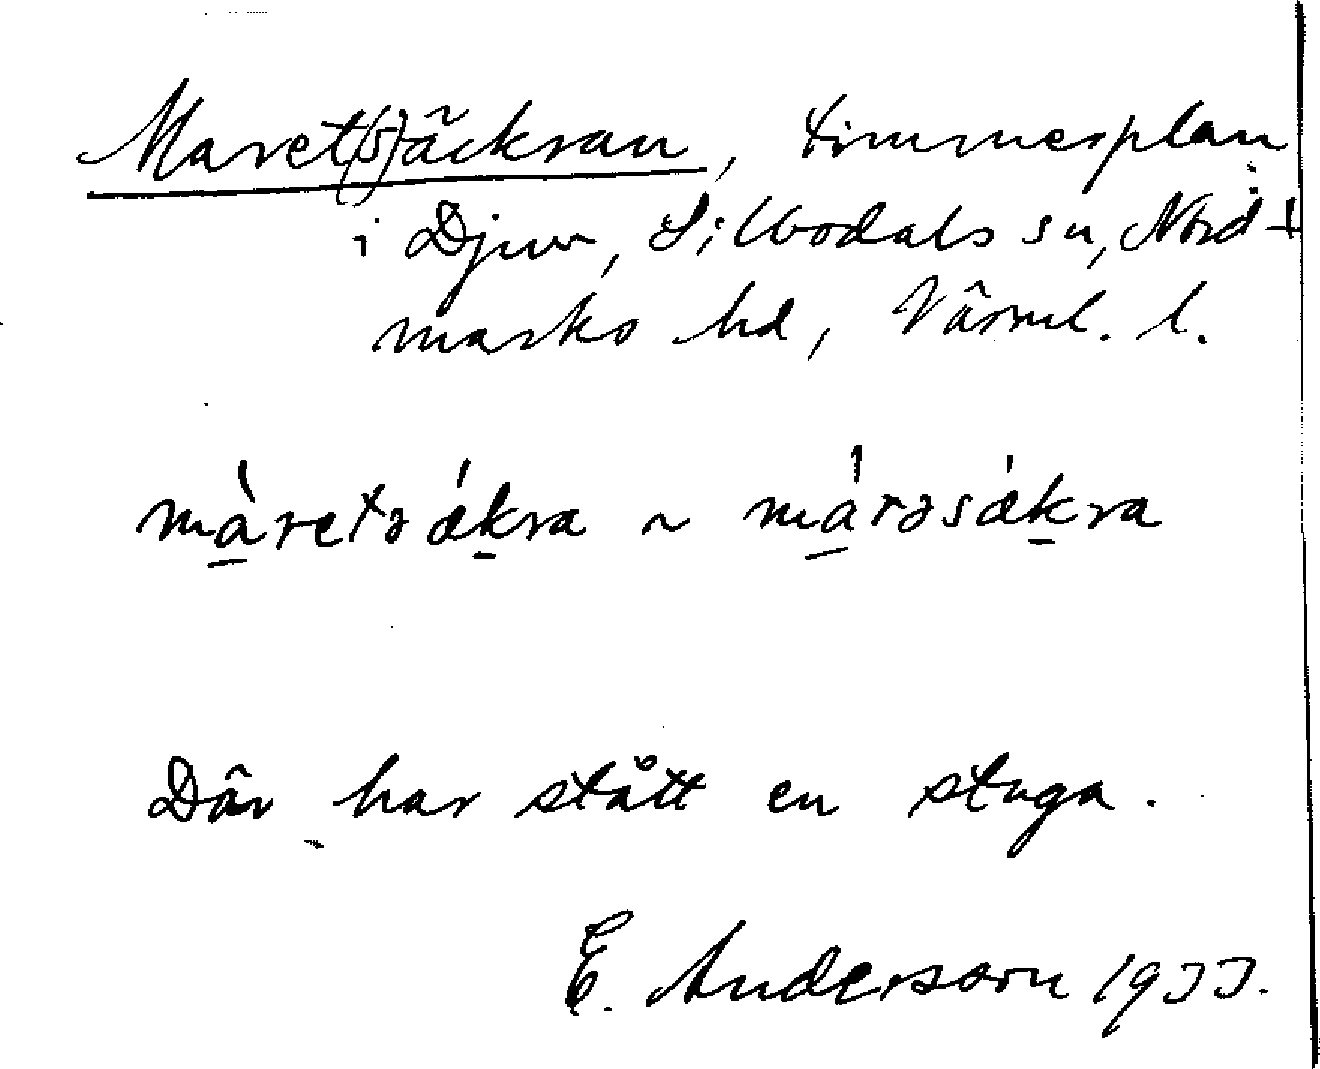 Maret(s)äckran, timmerplan
i Djuv, Silbodals sn, Nord-
marks hd, Värml. l.
màretsǽkra ~ márəsǽkra
Där har stått en stuga.
E. Anderson 1933.